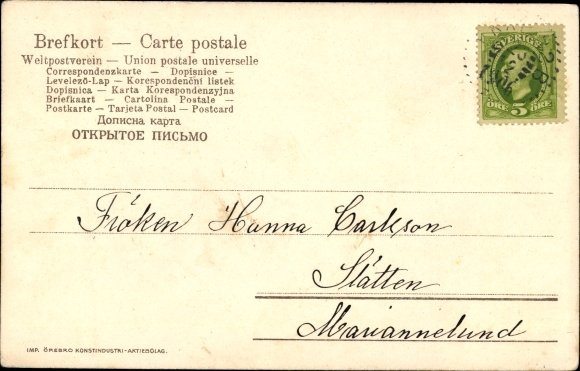 Brefkort — Carte postale
Weltpostverein — Union postale universelle
Correspondenzkarte — Dopisnice —
Levelező-Lap — Korespondenční lístek
Dopisnica — Karta Korespondenzyjna
Briefkaart — Cartolina Postale —
Postkarte — Tarjeta Postal — Postcard
Дописна карта
ОТКРЫТОЕ ПИСЬМО
SVERIGE
ÖRE 5 ÖRE
Fröken Hanna Carlsson
Slätten
Mariannelund
IMP. ÖREBRO KONSTINDUSTRI-AKTIEBOLAG.